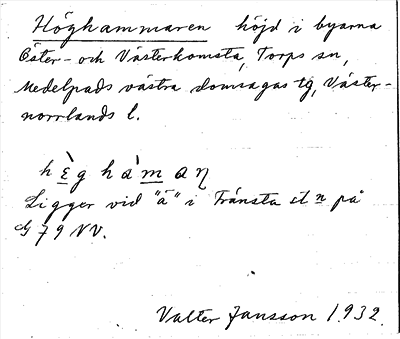 Höghammaren höjd i byarna
Öster- och Västerkomsta, Torps sn,
Medelpads västra domsagas tg, Väster-
norrlands l.
h ὲ g h a ̀ m a ɳ
Ligger vid "å" i Fränsta st n på
G 79 NV.
Valter Jansson 1932.